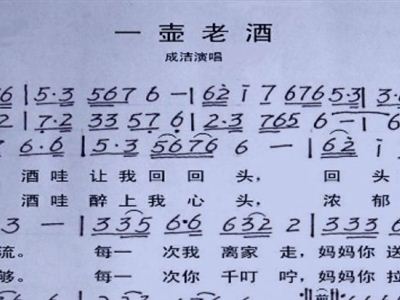 一壶老酒
成洁演唱
6 | 5·3 5676 6 — | 62̇ i̇ 7 676 5·3 | 3·6
2 | 7·2 3357 6 — | 2·3 765 6 — |
6·6 | 5·3 5676 6 — | 62̇ i̇
酒哇 让我回回头， 回头
酒哇 醉上我心头， 浓郁
3 — | 335 6·6 632 2 | 333 6
流。 每一次我离家走，妈妈你送
够。 每一次你千叮咛，妈妈你拉